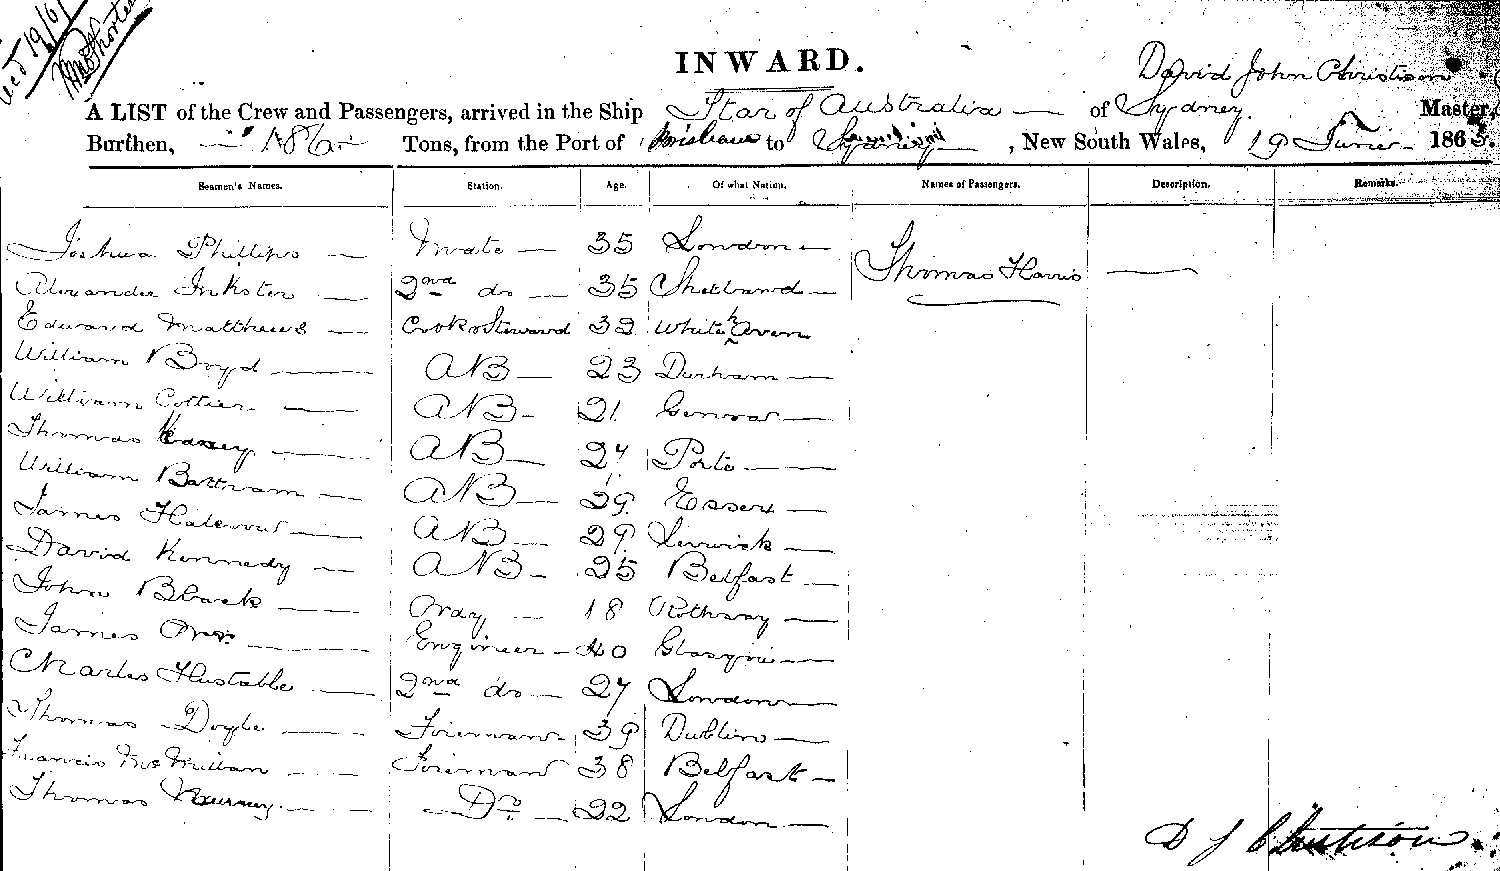 INWARD.
David John Christison
A LIST of the Crew and Passengers, arrived in the Ship Star of Australia of Sydney Master,
Burthen, Tons, from the Port of Brisbane to Sydney, New South Wales, 19 June 1863.
Seamen's Names. Station. Age. Of what Nation. Names of Passengers. Description. Remarks.
Joshua Phillips Mate 35 London Thomas Harris
Alexander Inkster 2nd do 35 Shetland
Edward Matthews Cook & Steward 32 White haven
William Boyd AB 23 Durham
William Cottier AB 21 Genoa
Thomas AB 27 Porto
William Battram AB 29 Essex
James AB 29 Lerwick
David Kennedy AB 25 Belfast
John Black 18 Rothsay
James Engineer 40 Glasgow
Charles Hustable 2nd do 27 London
Thomas Doyle Fireman 39 Dublin
Francis McMillan Fireman 38 Belfast
Thomas Do 22 London
D J Christison